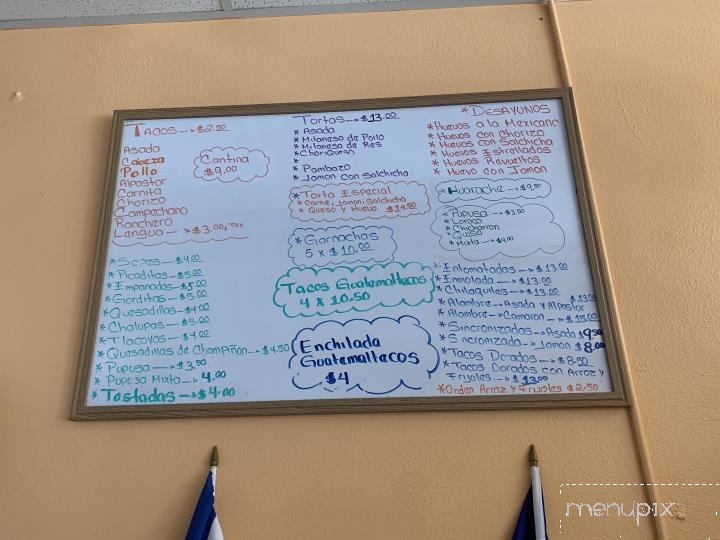 TACOS —> $2.50
Asada
Cabeza
Pollo
Alpastor
Carnita
Chorizo
Campechano
Ranchero
Lengua —> $3.00 + Tax
Cantina
$9.00
* Sopes —> $4.00
* Picaditas —> $5.00
* Empanadas —> $5.00
* Gorditas —> $5.00
* Quesadillas —> $4.00
* Chalupas — $5.00
* Tlacoyos —> $4.00
* Quesadillas de Champiñon —> $4.50
* Pupusa —> $3.50
* Pupusa Mixta —> 4.00
* Tostadas —> $4.00
Tortas —> $13.00
* Asada
* Milanesa de Pollo
* Milanesa de Res
* ChoriQueso
*
* Pambazo
* Jamon con Salchicha
* Torta Especial
* Carne, Jamon, Salchicha
* Queso y Huevo $14.50
* Garnachas
5 x $10.00
Tacos Guatemaltecos
4 x 10.50
Enchilada
Guatemaltecos
$4
* DESAYUNOS
* Huevos a la Mexicana
* Huevos con Chorizo
* Huevos con Salchicha
* Huevos Estrellados
* Huevos Revueltos
* Huevo con Jamon
* Huarache —> $9.50
* Pupusa —> $3.50
* Loroco
* Chicharron
* Queso
* Mixta —> $4.00
* Entomatadas —> $13.00
* Enmolada —> $13.00
* Chilaquiles —> $13.00
* Alambre —> Asada y Alpastor $13.00
* Alambre —> Camaron —> $15.00
* Sincronizadas —> Asada $9.50
* Sincronizada —> Jamon $8.00
* Tacos Dorados —> $8.50
* Tacos Dorados con Arroz y
Frijoles —> $13.00
* Orden Arroz y Frijoles $2.50
menupix